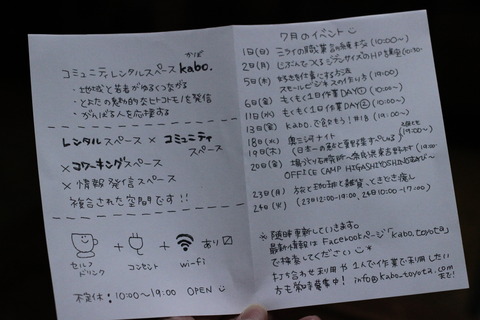 コミュニティレンタルスペース kabo.
かぼ
・地域と若者がゆるくつながる
・とよたの魅力的なヒトコトモノを発信
・がんばる人を応援する
レンタルスペース × コミュニティ
スペース
× コワーキングスペース
× 情報発信スペース
複合された空間です!!
+ + あり☑
セルフ
ドリンク
コンセント
wi-fi
不定休:10:00〜19:00 OPEN
7月のイベント
1日(日) ミライの職業 (10:00〜)
2日(月) じぶんでつくるデザインのHP講座 (10:30-
5日(木) 好きを仕事にする方法
スモールビジネスの作り方 (19:00)
6日(金) もくもく1日作業DAY① (10:00〜)
11日(水) もくもく1日作業DAY② (10:00〜)
13日(金) kabo.で飲もう!#18 (19:00〜)
18日(水) 奥三河ナイト
19日(木) (19:00〜)
20日(金)
OFFICE CAMP HIGASHIYOSHINO
23日(月) 旅と珈琲と雑貨、ときどき
24日(火) (23日12:00-19:00、24日10:00-17:00)
※ 随時更新していきます。
最新情報は Facebookページ「kabo.toyota」
で検索してください
打ち合わせ利用や1人で作業で利用したい
方も募集中! info@kabo-toyota.com
まで!